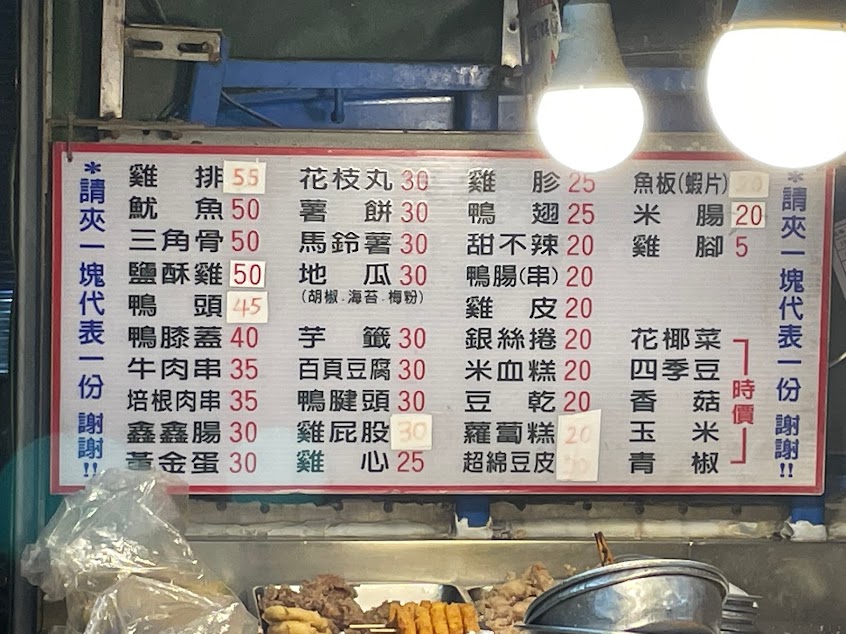 *請夾一塊代表一份 謝謝!!
雞排 55
魷魚 50
三角骨 50
鹽酥雞 50
鴨頭 45
鴨膝蓋 40
牛肉串 35
培根肉串 35
鑫鑫腸 30
黃金蛋 30
花枝丸 30
薯餅 30
馬鈴薯 30
地瓜 30
(胡椒.海苔.梅粉)
芋籤 30
百頁豆腐 30
鴨腱頭 30
雞屁股 30
雞心 25
雞胗 25
鴨翅 25
甜不辣 20
鴨腸(串) 20
雞皮 20
銀絲捲 20
米血糕 20
豆乾 20
蘿蔔糕 20
超綿豆皮
魚板(蝦片) 20
米腸 20
雞腳 5
花椰菜
四季豆
香菇
玉米
青椒
時價
*請夾一塊代表一份 謝謝!!